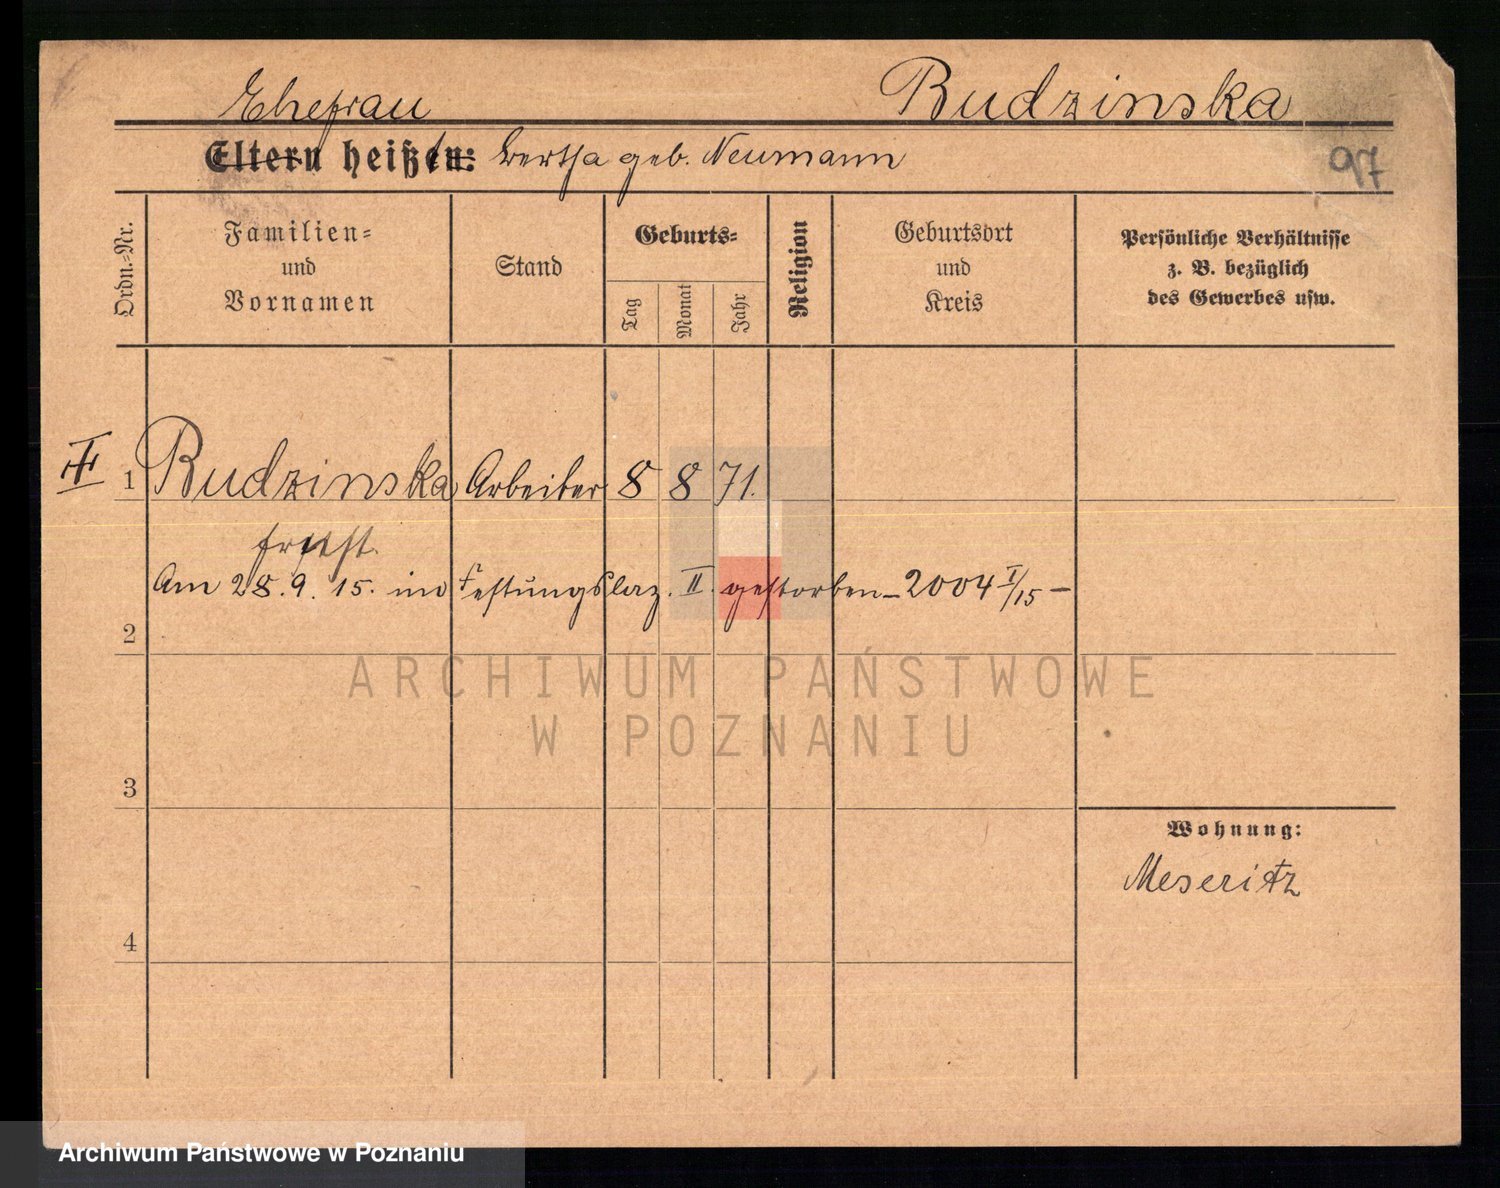 Ehefrau Rudzinska
Eltern heißen: Bertha geb. Neumann
97
Ordn.-Nr.
Familien-
und
Vornamen
Stand
Geburts-
Tag
Monat
Jahr
Religion
Geburtsort
und
Kreis
Persönliche Verhältnisse
z. B. bezüglich
des Gewerbes usw.
1 Rudzinska Arbeiter 8 8 71.
Am 28.9.15. im Festungslaz. II. gestorben - 2004 I/15 -
2
ARCHIWUM PAŃSTWOWE
W POZNANIU
3
Wohnung:
Meseritz
4
Archiwum Państwowe w Poznaniu